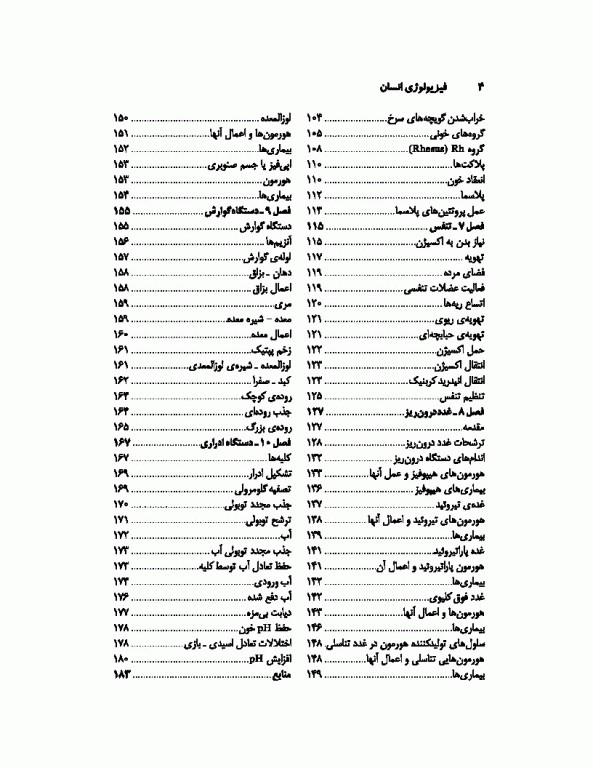 ۴ فیزیولوژی انسان
خراب‌شدن گویچه‌های سرخ ۱۰۴
گروه‌های خونی ۱۰۵
گروه Rh (Rhesus) ۱۰۸
پلاکت‌ها ۱۱۰
انعقاد خون ۱۱۰
پلاسما ۱۱۲
عمل پروتئین‌های پلاسما ۱۱۴
فصل ۷ ـ تنفس ۱۱۵
نیاز بدن به اکسیژن ۱۱۵
تهویه ۱۱۷
فضای مرده ۱۱۹
فعالیت عضلات تنفسی ۱۱۹
اتساع ریه‌ها ۱۲۰
تهویه‌ی ریوی ۱۲۱
تهویه‌ی حبابچه‌ای ۱۲۱
حمل اکسیژن ۱۲۲
انتقال اکسیژن ۱۲۳
انتقال انیدرید کربنیک ۱۲۴
تنظیم تنفس ۱۲۵
فصل ۸ ـ غدد درون‌ریز ۱۲۷
مقدمه ۱۲۷
ترشحات غدد درون‌ریز ۱۲۸
اندام‌های دستگاه درون‌ریز ۱۳۲
هورمون‌های هیپوفیز و عمل آنها ۱۳۳
بیماری‌های هیپوفیز ۱۳۶
غده‌ی تیروئید ۱۳۷
هورمون‌های تیروئید و اعمال آنها ۱۳۸
بیماری‌ها ۱۳۹
غده پاراتیروئید ۱۴۱
هورمون پاراتیروئید و اعمال آن ۱۴۱
بیماری‌ها ۱۴۲
غدد فوق کلیوی ۱۴۲
هورمون‌ها و اعمال آنها ۱۴۳
بیماری‌ها ۱۴۶
سلول‌های تولیدکننده هورمون در غدد تناسلی ۱۴۸
هورمون‌هایی تناسلی و اعمال آنها ۱۴۸
بیماری‌ها ۱۴۹
لوزالمعده ۱۵۰
هورمون‌ها و اعمال آنها ۱۵۱
بیماری‌ها ۱۵۲
اپی‌فیز یا جسم صنوبری ۱۵۳
هورمون ۱۵۳
بیماری‌ها ۱۵۴
فصل ۹ ـ دستگاه گوارش ۱۵۵
دستگاه گوارش ۱۵۵
آنزیم‌ها ۱۵۶
لوله‌ی گوارش ۱۵۷
دهان ـ بزاق ۱۵۸
اعمال بزاق ۱۵۸
مری ۱۵۹
معده – شیره معده ۱۵۹
اعمال معده ۱۶۰
زخم پپتیک ۱۶۱
لوزالمعده ـ شیره‌ی لوزالمعدی ۱۶۱
کبد ـ صفرا ۱۶۲
روده‌ی کوچک ۱۶۴
جذب روده‌ای ۱۶۴
روده‌ی بزرگ ۱۶۵
فصل ۱۰ ـ دستگاه ادراری ۱۶۷
کلیه‌ها ۱۶۷
تشکیل ادرار ۱۶۹
تصفیه گلومرولی ۱۶۹
جذب مجدد توبولی ۱۷۰
ترشح توبولی ۱۷۱
آب ۱۷۲
جذب مجدد توبولی آب ۱۷۳
حفظ تعادل آب توسط کلیه ۱۷۳
آب ورودی ۱۷۴
آب دفع شده ۱۷۶
دیابت بی‌مزه ۱۷۷
حفظ pH خون ۱۷۸
اختلالات تعادل اسیدی ـ بازی ۱۷۸
افزایش pH ۱۸۰
منابع ۱۸۳